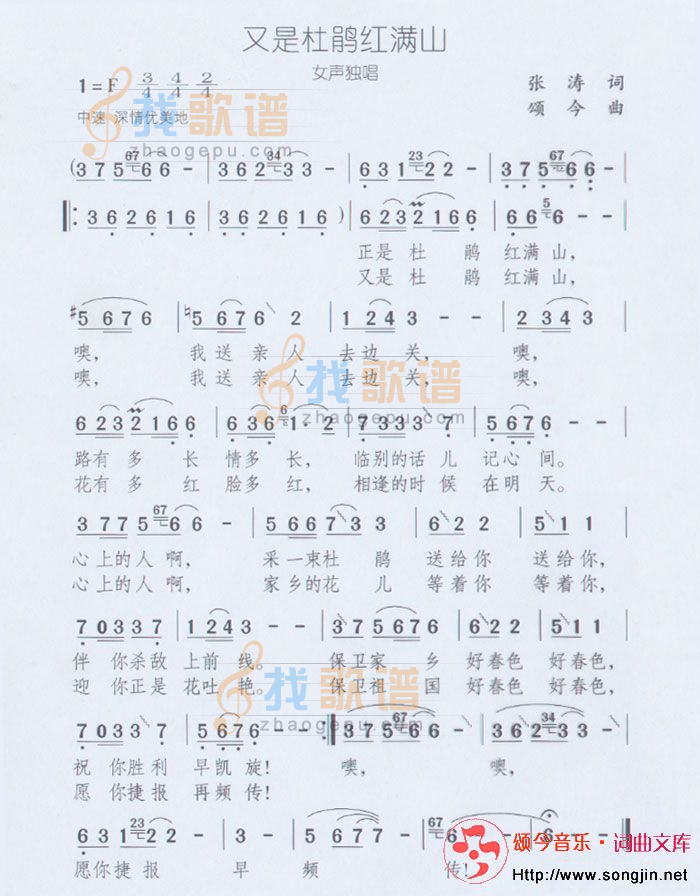 又是杜鹃红满山
女声独唱
1=F 3/4 4/4 2/4
张涛 词
颂今 曲
中速 深情优美地
找歌谱
zhaogepu.com
(3 7 5 67 6 6 - | 3 6 2 34 3 3 - | 6 3 1 23 2 2 - | 3 7 5 67 6 6 - |
|: 3 6 2 6 1 6 | 3 6 2 6 1 6 ) | 6 2 3 2 1 6 6 | 6 6 5 6 - - |
正是 杜 鹃 红满 山,
又是 杜 鹃 红满 山,
#5 6 7 6 | #5 6 7 6 2 | 1 2 4 3 - - | 2 3 4 3 |
噢, 我 送 亲 人 去 边 关, 噢,
噢, 我 送 亲 人 去 边 关, 噢,
找歌谱
zhaogepu.com
6 2 3 2 1 6 6 | 6 3 6 6 1· 2 | 7 3 3 3 | 5 6 7 6 - - |
路有 多 长 情多 长, 临别的话 儿 记心 间。
花有 多 红 脸多 红, 相逢的时 候 在明 天。
3 7 7 5 67 6 6 - | 5 6 6 7 3 3 | 6 2 2 | 5 1 1 |
心上的人 啊, 采一束杜 鹃 送给你 送给你,
心上的人 啊, 家乡的花 儿 等着你 等着你,
7 0 3 3 7 | 1 2 4 3 - | 3 7 5 6 7 6 | 6 2 2 | 5 1 1 |
伴 你杀敌 上前 线。 保卫家 乡 好春色 好春色,
迎 你正是 花吐 艳。 保卫祖 国 好春色 好春色,
找歌谱
zhaogepu.com
7 0 3 3 | 5 6 7 6 - :| 3 7 5 67 6 6 - | 3 6 2 34 3 3 - |
祝 你胜利 早凯 旋! 噢, 噢,
愿 你捷报 再频 传!
6 3 1 23 2 2 - | 3 - | 5 6 7 7 | 67 6 - - | 6 - 0 ‖
愿你捷 报 早 频 传!
颂今音乐·词曲文库
http://www.songjin.net